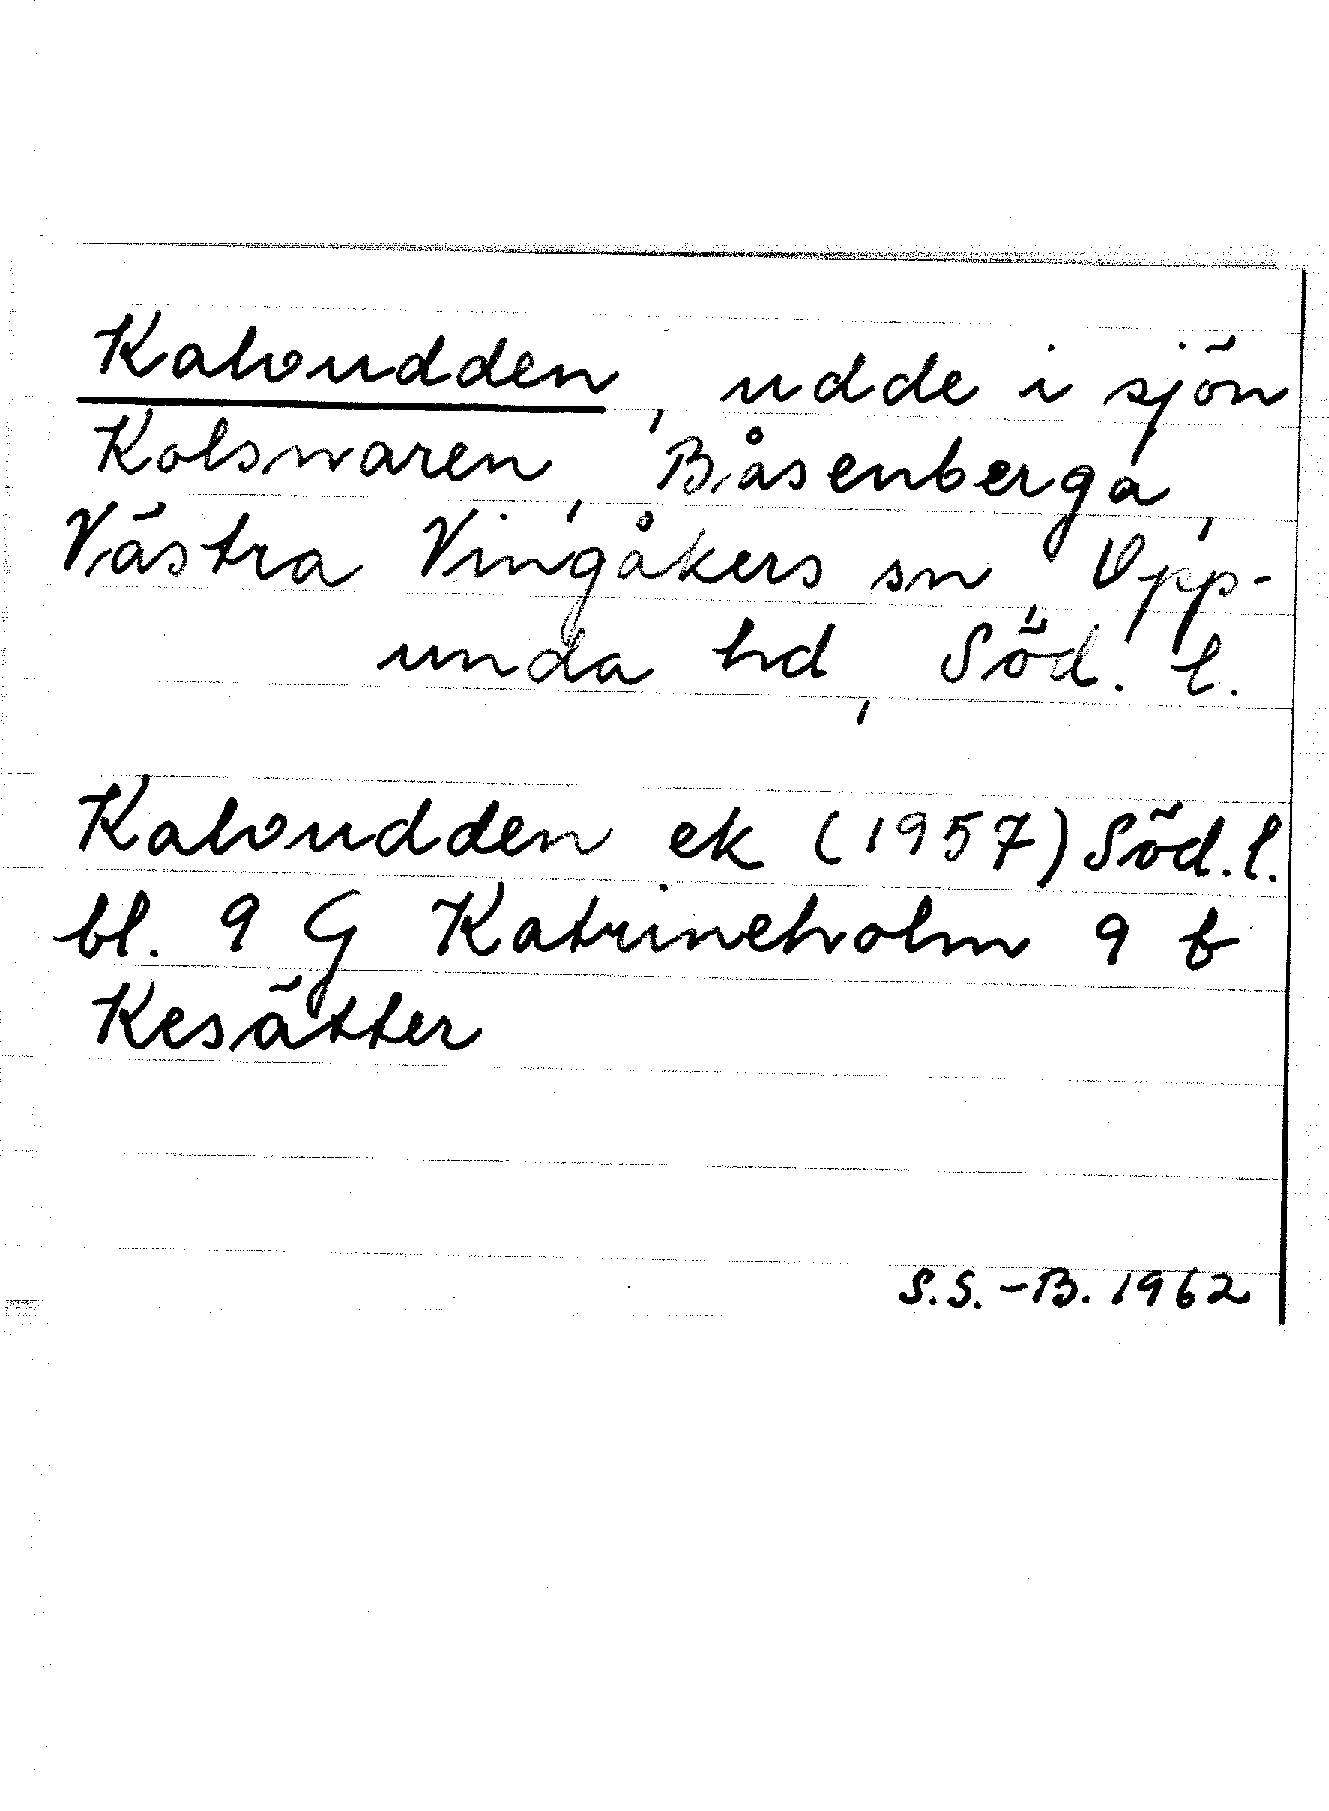 Kalvudden, udde i sjön
Kolsnaren, Båsenberga,
Västra Vingåkers sn, Opp-
unda hd, Söd. l.
Kalvudden ek (1957) Söd. l.
bl. 9 G Katrineholm 9 b
Kesätter
S.S.-B. 1962